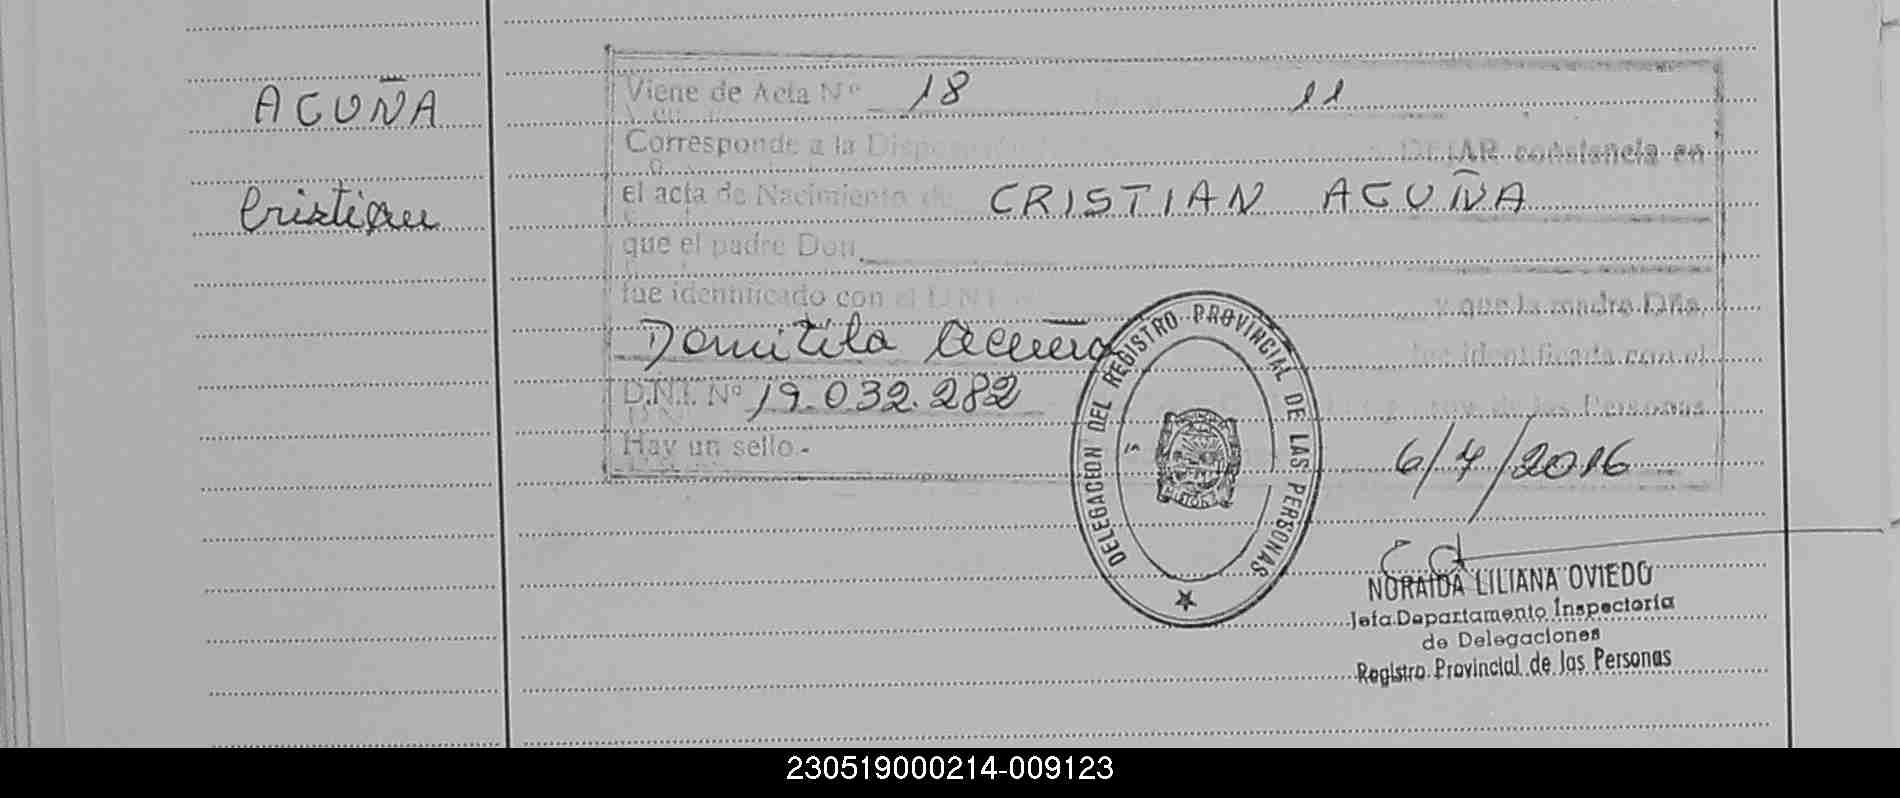 ACUÑA
Cristian
Viene de Acta Nº 18 11
Corresponde a la DEJAR constancia en
el acta de Nacimiento de CRISTIAN ACUÑA
que el padre Don
fue identificado con el D.N.I. y que la madre Dña.
Domitila Acuña fue identificada con el
D.N.I. Nº 19.032.282 de las Personas
Hay un sello.-
6/7/2016
DELEGACION DEL REGISTRO PROVINCIAL DE LAS PERSONAS
NORAIDA LILIANA OVIEDO
Jefa Departamento Inspectoría
de Delegaciones
Registro Provincial de las Personas
230519000214-009123